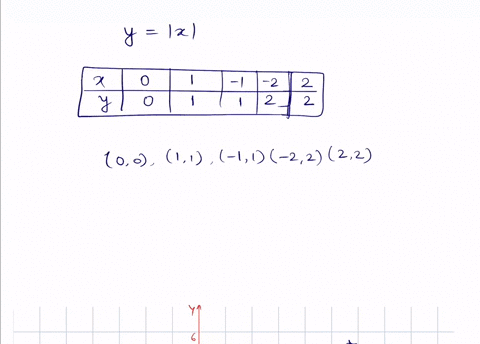 y = |x|
x 0 1 -1 -2 2
y 0 1 1 2 2
(0,0), (1,1), (-1,1) (-2,2) (2,2)
Y
6